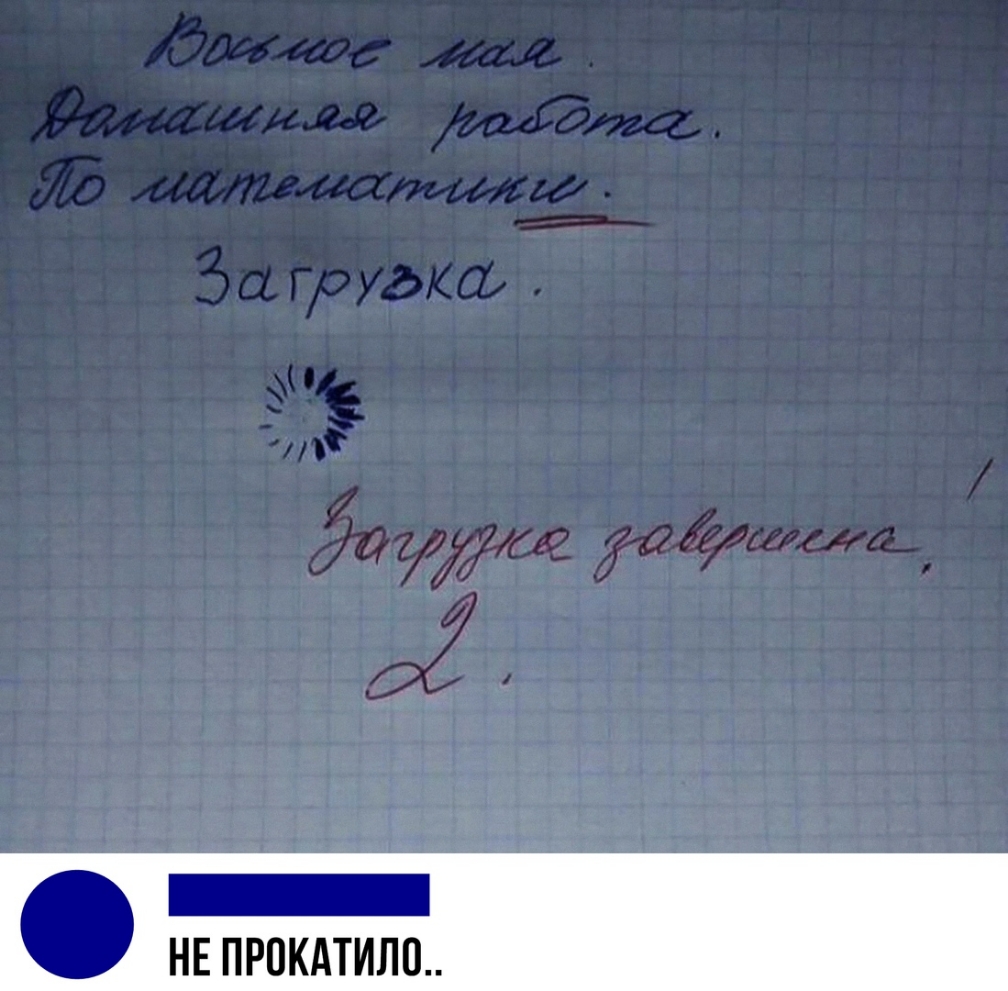 Восьмое мая.
Домашняя работа.
По математики.
Загрузка.
Загрузка завершена!
2.
НЕ ПРОКАТИЛО..